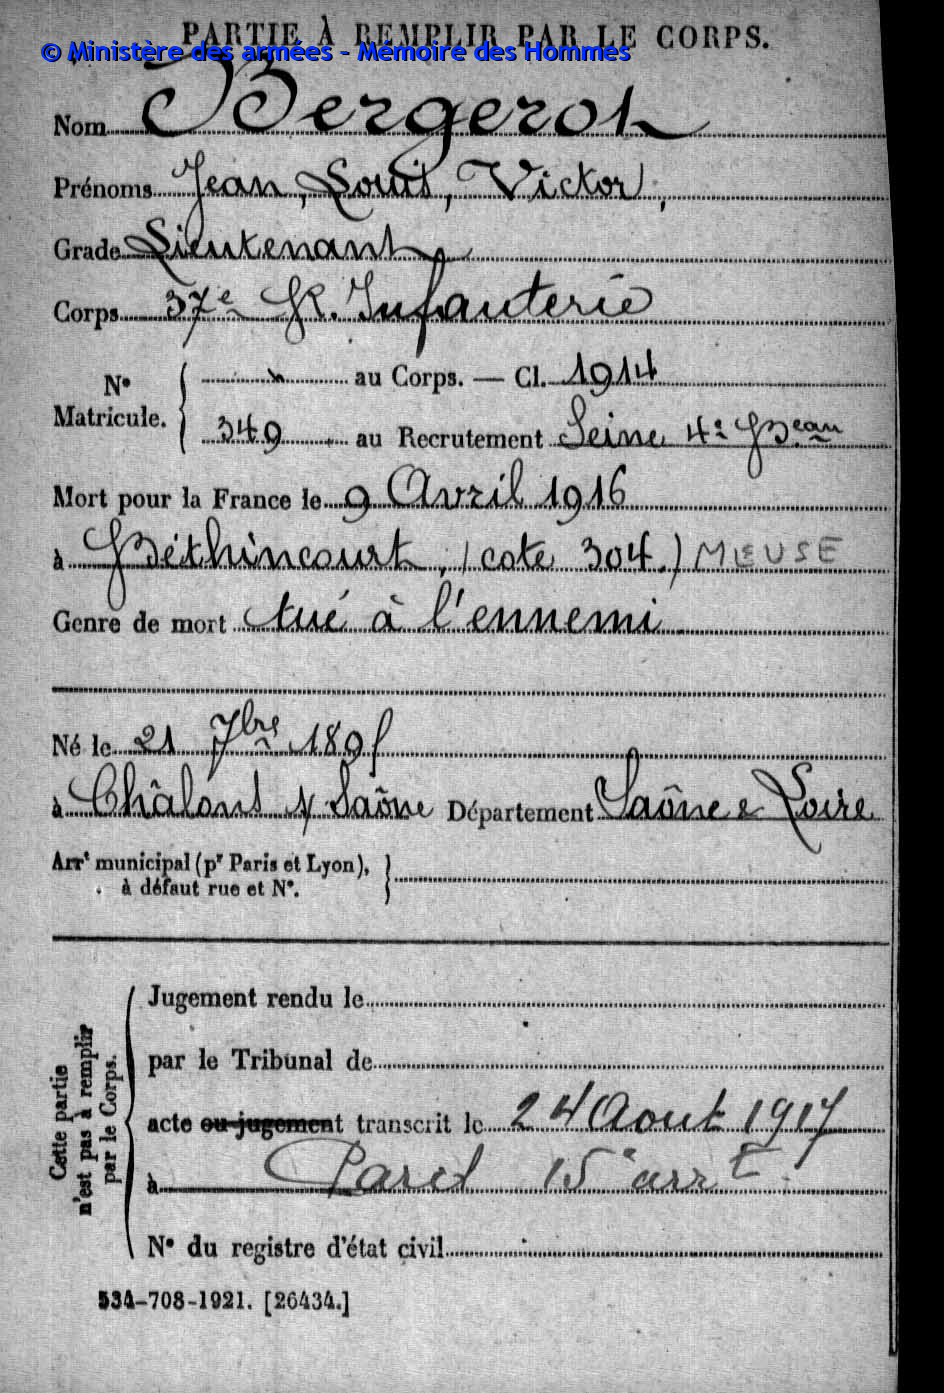 PARTIE À REMPLIR PAR LE CORPS.
© Ministère des armées - Mémoire des Hommes
Nom Bergerot
Prénoms Jean, Louis, Victor,
Grade Lieutenant
Corps 37e R. Infanterie
N° Matricule. { au Corps. — Cl. 1914
349 au Recrutement Seine 4e Beau
Mort pour la France le 9 Avril 1916
à Béthincourt, (cote 304.) MEUSE
Genre de mort tué à l'ennemi
Né le 21 7bre 189
à Châlons s/ Saône Département Saône & Loire
Arrt municipal (pr Paris et Lyon),
à défaut rue et N°. }
Cette partie n'est pas à remplir par le Corps.
Jugement rendu le
par le Tribunal de
acte ou jugement transcrit le 24 Aout 1917
à Paris 15e arrt
N° du registre d'état civil
534-708-1921. [26434.]